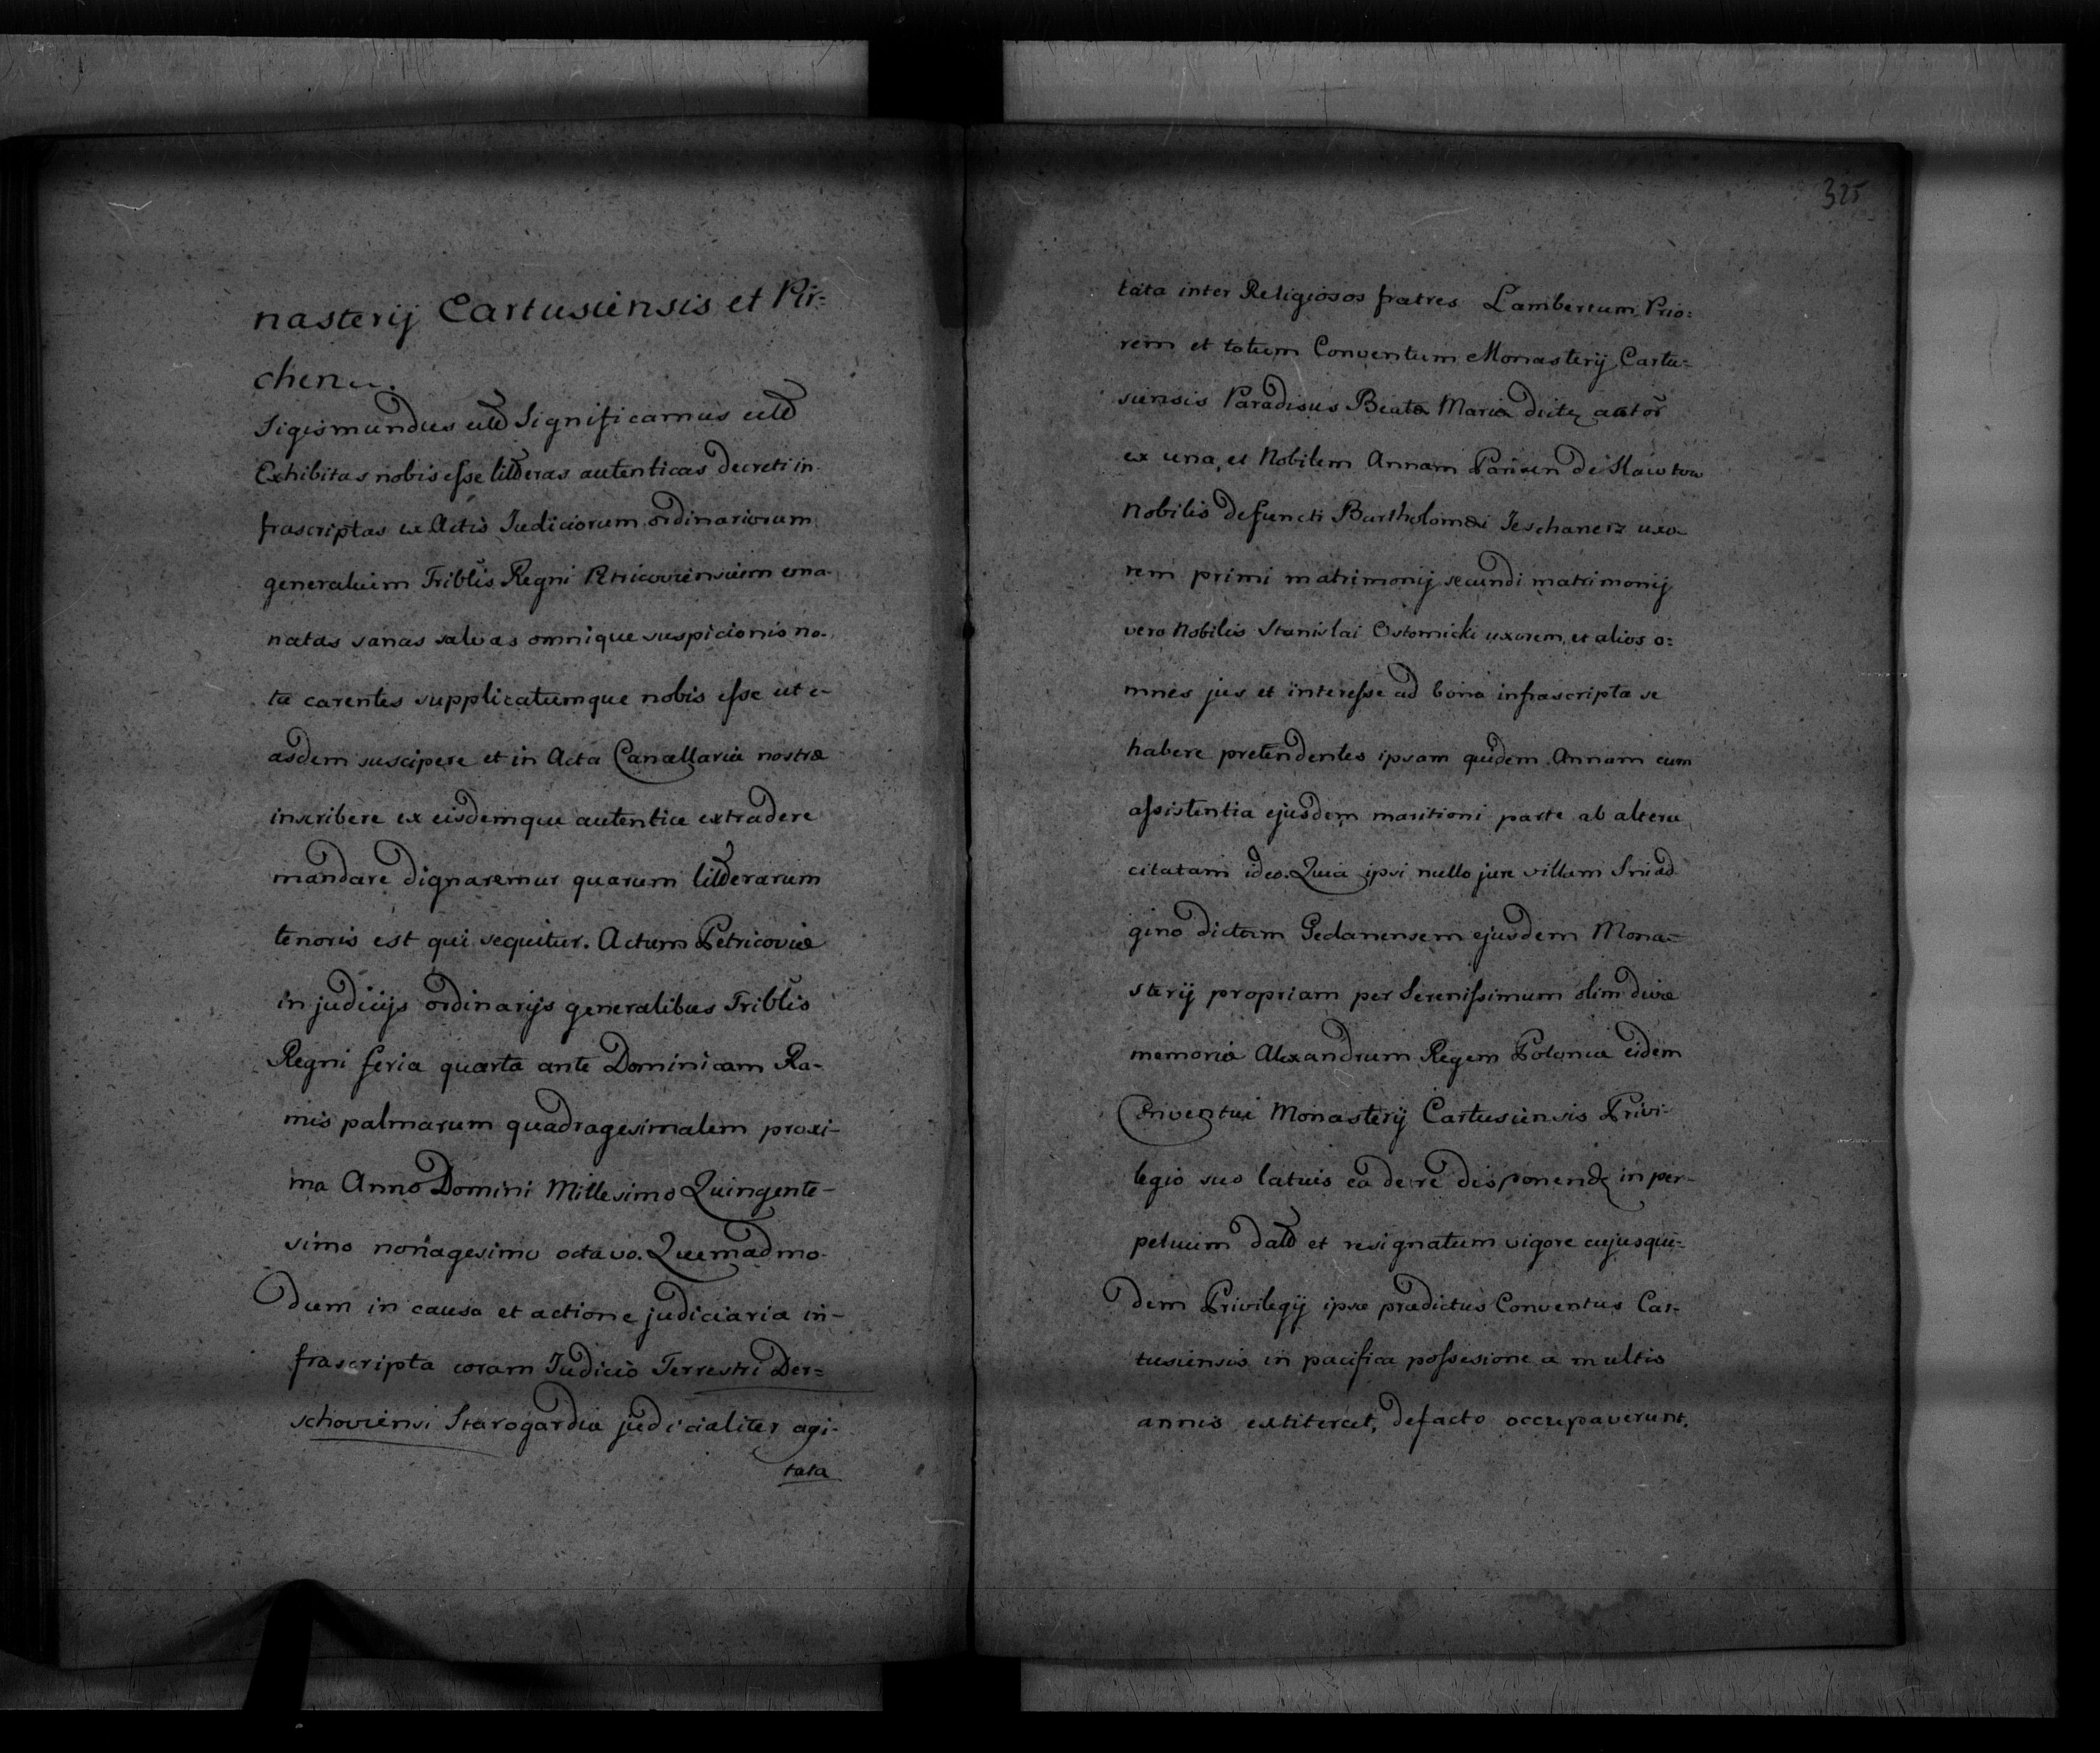 nasterij Cartusiensis et Pir=
chen
Sigismundus etc Significamus etc
Exhibitas nobis esse litteras autenticas decreti in-
frascriptas ex Actis Judiciorum ordinariorum
generalium Triblis Regni Petricoviensium ema-
natas sanas salvas omnique suspicionis no-
ta carentes supplicatumque nobis esse ut e-
asdem suscipere et in Acta Cancellariæ nostræ
inscribere ex eisdemque autentice extradere
mandare dignaremur quarum litterarum
tenoris est qui sequitur. Actum Petricoviæ
in judicijs ordinarijs generalibus Triblis
Regni feria quarta ante Dominicam Ra-
mis palmarum quadragesimalem proxi-
ma Anno Domini Millesimo Quingente-
simo nonagesimo octavo. Quemadmo-
dum in causa et actione judiciaria in-
frascripta coram Judicio Terrestri Der=
schoviensi Starogardiæ judicialiter agi-
tata
325
tata inter Religiosos fratres Lambertum Prio=
rem et totum Conventum Monasterij Cartu=
siensis Paradisus Beatæ Mariæ dictæ actor
ex una, et Nobilem Annam de
Nobilis defuncti Bartholomæi Jeschanerz uxo-
rem primi matrimonij secundi matrimonij
vero Nobilis Stanislai Ostornicki uxorem, et alios o=
mnes jus et interesse ad bona infrascripta se
habere pretendentes ipsam quidem Annam cum
assistentia ejusdem maritioni parte ab altera
citatam ideo. Quia ipsi nullo jure villam Smad
gino dictam Gedanensem ejusdem Mona=
sterij propriam per Serenissimum olim divæ
memoriæ Alexandrum Regem Poloniæ eidem
Conventui Monasterij Cartusiensis Privi-
legio suo latius ea de re disponende in per-
petuum datt et resignatum vigore cujusqui=
dem Privilegij ipse prædictus Conventus Car-
tusiensis in pacifica possesione a multis
annis extiterat, defacto occupaverunt.